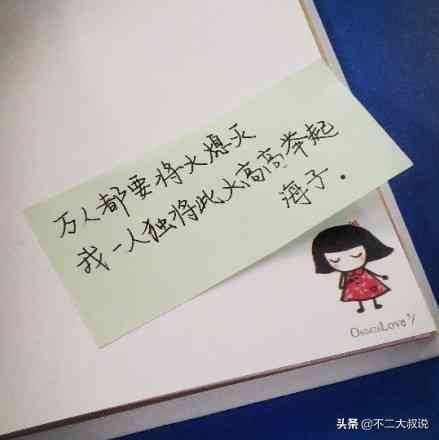 万人都要将火熄灭
我一人独将此火高高举起
海子.
OsososLove
头条 @不二大叔说